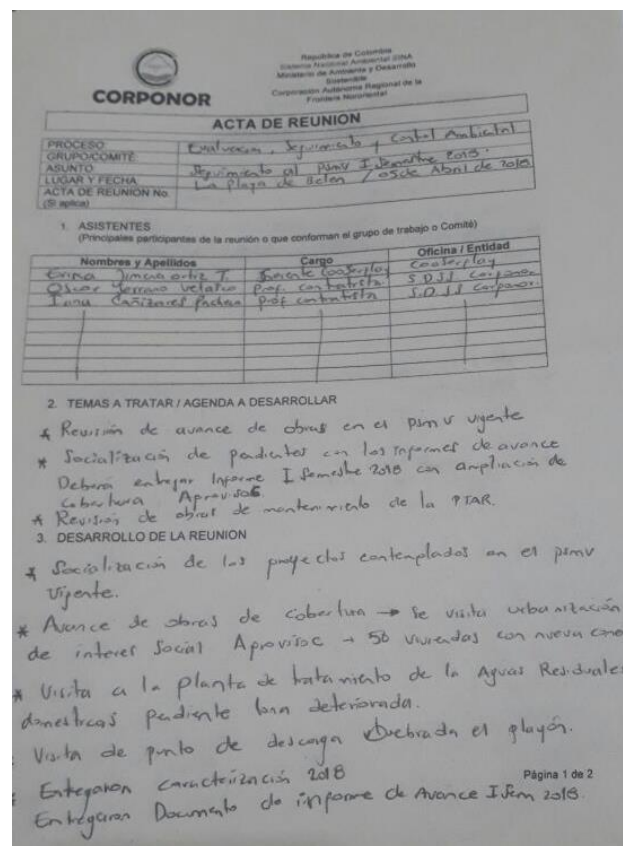 República de Colombia
Sistema Nacional Ambiental SINA
Ministerio de Ambiente y Desarrollo
Sostenible
Corporación Autónoma Regional de la
Frontera Nororiental
CORPONOR
ACTA DE REUNION
PROCESO: Evaluación, Seguimiento y Control Ambiental
GRUPO/COMITÉ:
ASUNTO: Seguimiento al PSMV I Semestre 2018.
LUGAR Y FECHA La playa de Belén / 05 de Abril de 2018
ACTA DE REUNIÓN No.
(Si aplica)
1. ASISTENTES
(Principales participantes de la reunión o que conforman el grupo de trabajo o Comité)
Nombres y Apellidos Cargo Oficina / Entidad
Jimena Ortiz T. Gerente Cooserplay Cooserplay
Oscar Serrano Velasco Prof. contratista S.D.S.S Corponor
Cañizares Pacheco Prof contratista S.D.S.S Corponor
2. TEMAS A TRATAR / AGENDA A DESARROLLAR
* Revisión de avance de obras en el psmv vigente
* Socialización de pendientes con los informes de avance
Deberá entregar Informe I Semestre 2018 con ampliación de
cobertura
* Revisión de obras de mantenimiento de la PTAR.
3. DESARROLLO DE LA REUNION
* Socialización de los proyectos contemplados en el psmv
Vigente.
* Avance de obras de cobertura → Se visita urbanización
de interes Social Aprovisoc → 50 viviendas con nueva cone
* Visita a la planta de tratamiento de la Aguas Residuales
domesticas pendiente lona deteriorada.
Visita de punto de descarga Quebrada el playón.
* Entregaron caracterización 2018
Entregaron Documento de informe de Avance I Sem 2018.
Página 1 de 2